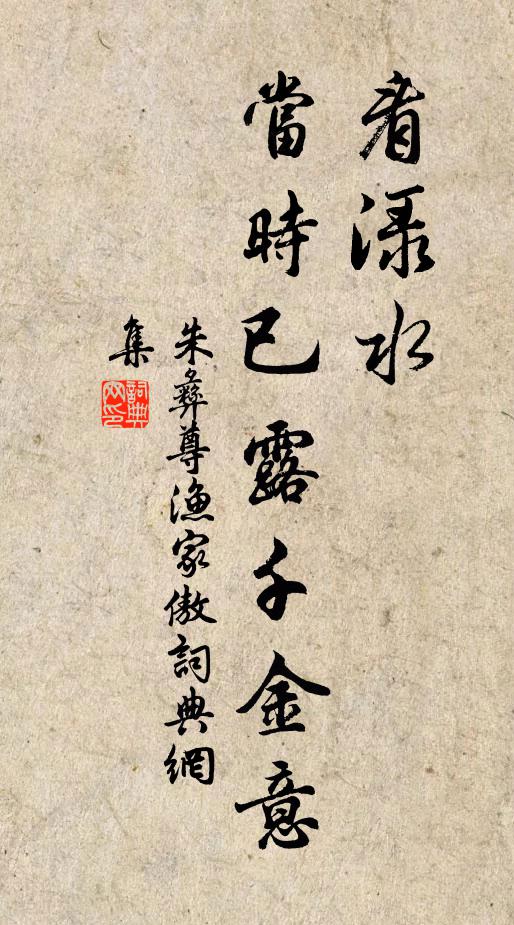 看渌水
當時已露千金意
朱彝尊漁家傲詞典網
集
詞典
网印